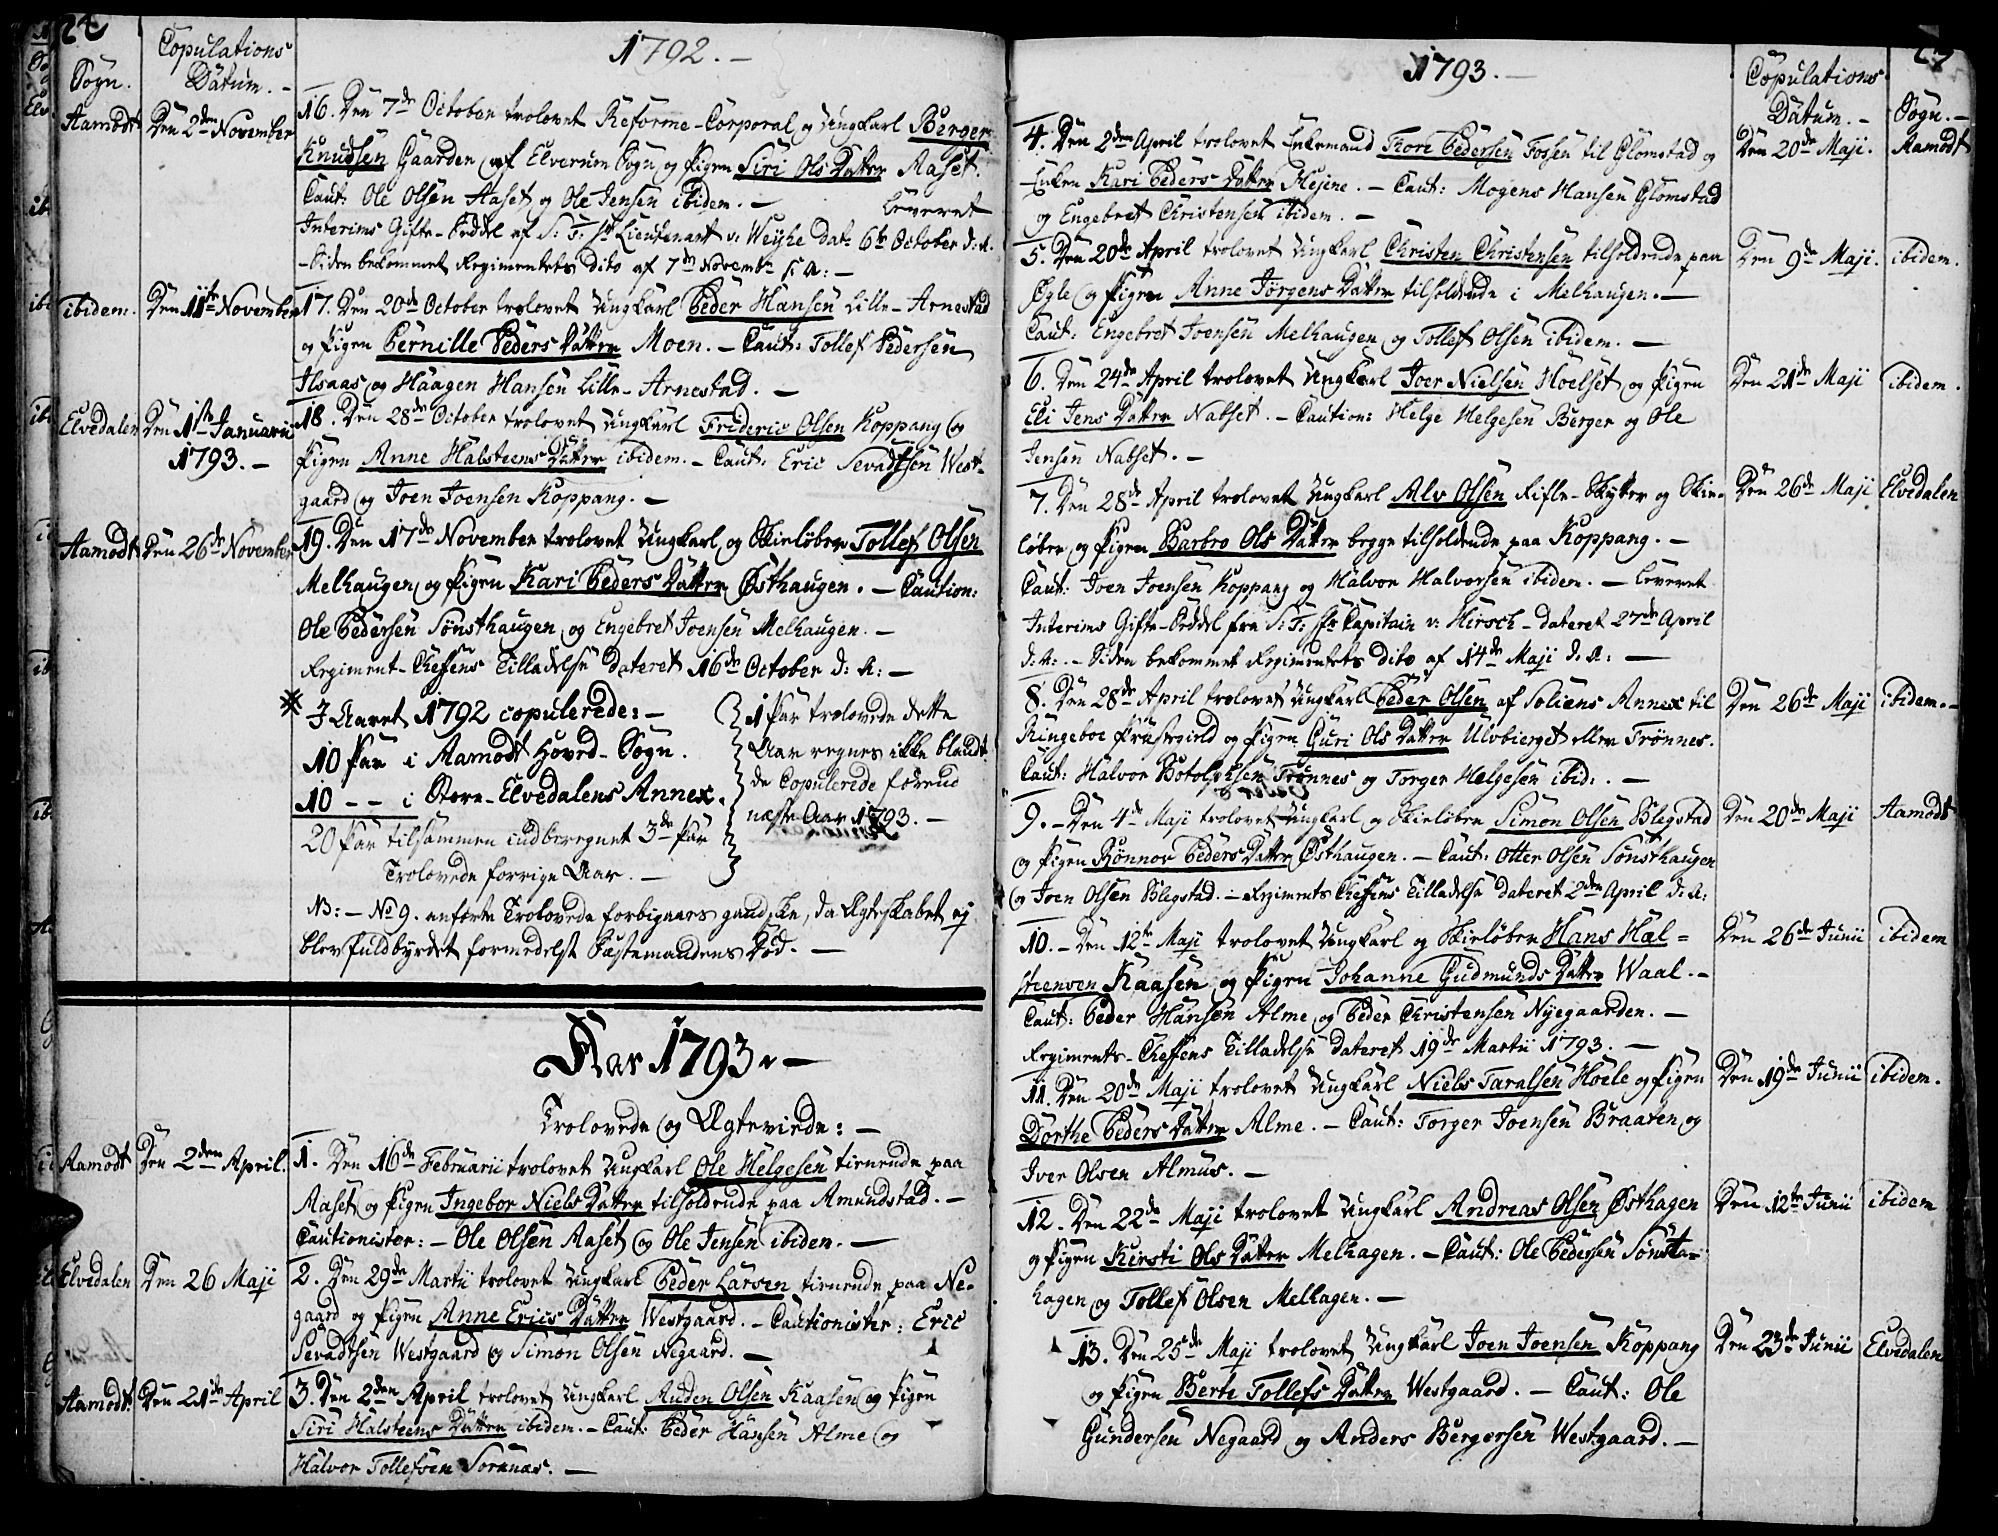 1792. –
Sogn.
Copulations
Datum. –
Aamodt
Den 2den November
16. Den 7de October trolovet Reforme-Corporal og Ungkarl Berger
Knudsen Gaarden af Elverum Sogn og Pigen Siri Ols Datter Aaset.
Caut: Ole Olsen Aaset og Ole Jensen ibidem. – Leveret
Interims Gifte-Seddel af S: T: Hr Lieutenant v: Weyhe dat: 6te October d: A:
– Siden bekommet Regimentets dito af 7de Novembr s: A: –
ibidem.
Den 11te November
17. Den 20de October trolovet Ungkarl Peder Hansen Lille-Arnestad
og Pigen Pernille Peders Datter Moen. – Caut: Tollef Pedersen
Ilsaas og Haagen Hansen Lille-Arnestad. –
Elvedalen
Den 1ste Januarii
1793. –
18. Den 28de October trolovet Ungkarl Frideric Olsen Koppang og
Pigen Anne Halsteens Datter ibidem. – Caut: Eric Sevadtsen West-
gaard og Joen Joensen Koppang. –
Aamodt
Den 26de November
19. Den 17de November trolovet Ungkarl og Skieløber Tollef Olsen
Melhaugen og Pigen Kari Peders Datter Østhaugen. – Caution:
Ole Pedersen Sønsthaugen og Engebret Joensen Melhaugen. –
Regiment-Cheffens Tilladelse dateret 16de October d: A: –
I Aaret 1792 copulerede: –
10 Par i Aamodt Hoved-Sogn.
10 – – i Store-Elvedalens Annex.
20 Par tilsammen indberegnet 3de Par
Trolovede forrige Aar. –
1 Par trolovede dette
Aar regnes ikke blandt
de Copulerede förend
næste Aar 1793. –
NB: – No 9. anførte Trolovede forbigaaes gandske, da Ægteskabet ej
blev fuldbyrdet formedelst Fæstemandens Död. –
Aar 1793. –
Trolovede og Ægteviede: –
Aamodt
Den 2den April.
1. Den 16de Februarii trolovet Ungkarl Ole Helgesen tienende paa
Aaset og Pigen Ingebor Niels Datter tilholdende paa Amundstad. –
Cautionister: – Ole Olsen Aaset og Ole Jensen ibidem. –
Elvedalen
Den 26 Maji
2. Den 29de Martii trolovet Ungkarl Peder Larsen tienende paa Ne-
gaard og Pigen Anne Erics Datter Westgaard. – Cautionister: Eric
Sevadtsen Westgaard og Simon Olsen Negaard. –
Aamodt.
Den 21de April
3. Den 2den April trolovet Ungkarl Auden Olsen Kaasen og Pigen
Siri Halsteens Datter ibidem. – Caut: Peder Hansen Alme og
Halvor Tollefsen Sorknæs. –
1793. –
Copulations
Datum. –
Sogn. –
4. Den 2den April trolovet Enkemand Thore Pedersen Fossen til Glomstad og
Enken Kari Peders Datter – Caut: Mogens Hansen Glomstad
og Engebret Christensen ibidem. –
Den 20de Maji.
Aamodt
5. Den 20de April trolovet Ungkarl Christen Christensen tilholdende paa
Øgle og Pigen Anne Jörgens Datter tilholdende i Melhaugen. –
Caut: Engebret Joensen Melhaugen og Tollef Olsen ibidem. –
Den 9de Maji.
ibidem.
6. Den 24de April trolovet Ungkarl Joer Nielsen Hoelset og Pigen
Eli Jens Datter Nabset. – Caution: Helge Helgesen Berger og Ole
Jensen Nabset. –
Den 21de Maji
ibidem.
7. Den 28de April trolovet Ungkarl Alv Olsen Rifle-Skytter og Skie-
löber og Pigen Barbro Ols Datter begge tilholdende paa Koppang. –
Caut: Joen Joensen Koppang og Halvor Halvorsen ibidem. – Leveret
Interims Gifte-Seddel fra S: T: Hr Capitain v: Hirsch – dateret 27de April
d: A: – Siden bekommet Regimentets dito af 14de Maji d: A: –
Den 26de Maji
Elvedalen
8. Den 28de April trolovet Ungkarl Peder Olsen af Soliens Annex til
Ringeboe Præstegield og Pigen Guri Ols Datter Ulvbierget eller Trönnes.
Caut: Halvor Botolphsen Trönnes og Torger Helgesen ibid: . –
Den 26de Maji
ibidem. –
9. – Den 4de Maji trolovet Ungkarl og Skielöber Simon Olsen Blegstad
og Pigen Rönnov Peders Datter Østhaugen. – Caut: Otter Olsen Sönsthaugen
og Joen Olsen Blegstad. – Regiments Cheffens Tilladelse dateret 2den April d: A:
Den 20de Maji
Aamodt
10. – Den 12te Maji trolovet Ungkarl og Skieløber Hans Hal=
steensen Kaasen og Pigen Johanne Gudmunds Datter Waal. –
Caut: Peder Hansen Alme og Peder Christensen Nyegaarden. –
Regiments-Cheffens Tilladelse dateret 19de Martii 1793. –
Den 26de Junii
ibidem
11. Den 20de Maji trolovet Ungkarl Niels Taralsen Hoele og Pigen
Dorthe Peders Datter Alme. – Caut: Torger Joensen Braaten og
Iver Olsen Almus. –
Den 19de Junii
ibidem.
12. Den 22de Maji trolovet Ungkarl Andreas Olsen Østhagen
og Pigen Kirsti Ols Datter Melhagen. – Caut: Ole Pedersen Sönst=
hagen og Tollef Olsen Melhagen. –
Den 12te Junii
ibidem
13. Den 25de Maji trolovet Ungkarl Joen Joensen Koppang
og Pigen Berte Tollefs Datter Westgaard. – Caut: Ole
Gundersen Negaard og Anders Bergersen Westgaard. –
Den 23de Junii
Elvedalen